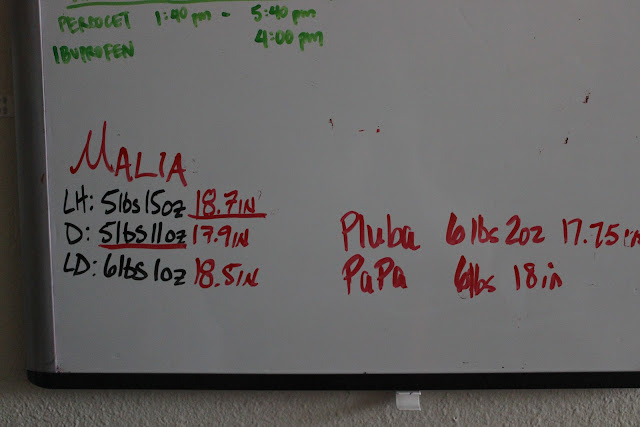 PERCOCET 1:40 pm - 5:40 pm
IBUPROFEN 4:00 pm
MALIA
LH: 5lbs 15oz 18.7IN
D: 5lbs 11oz 17.9IN
LD: 6lbs 1oz 18.5IN
Pluba 6lbs 2oz 17.75
PaPa 6lbs 18in